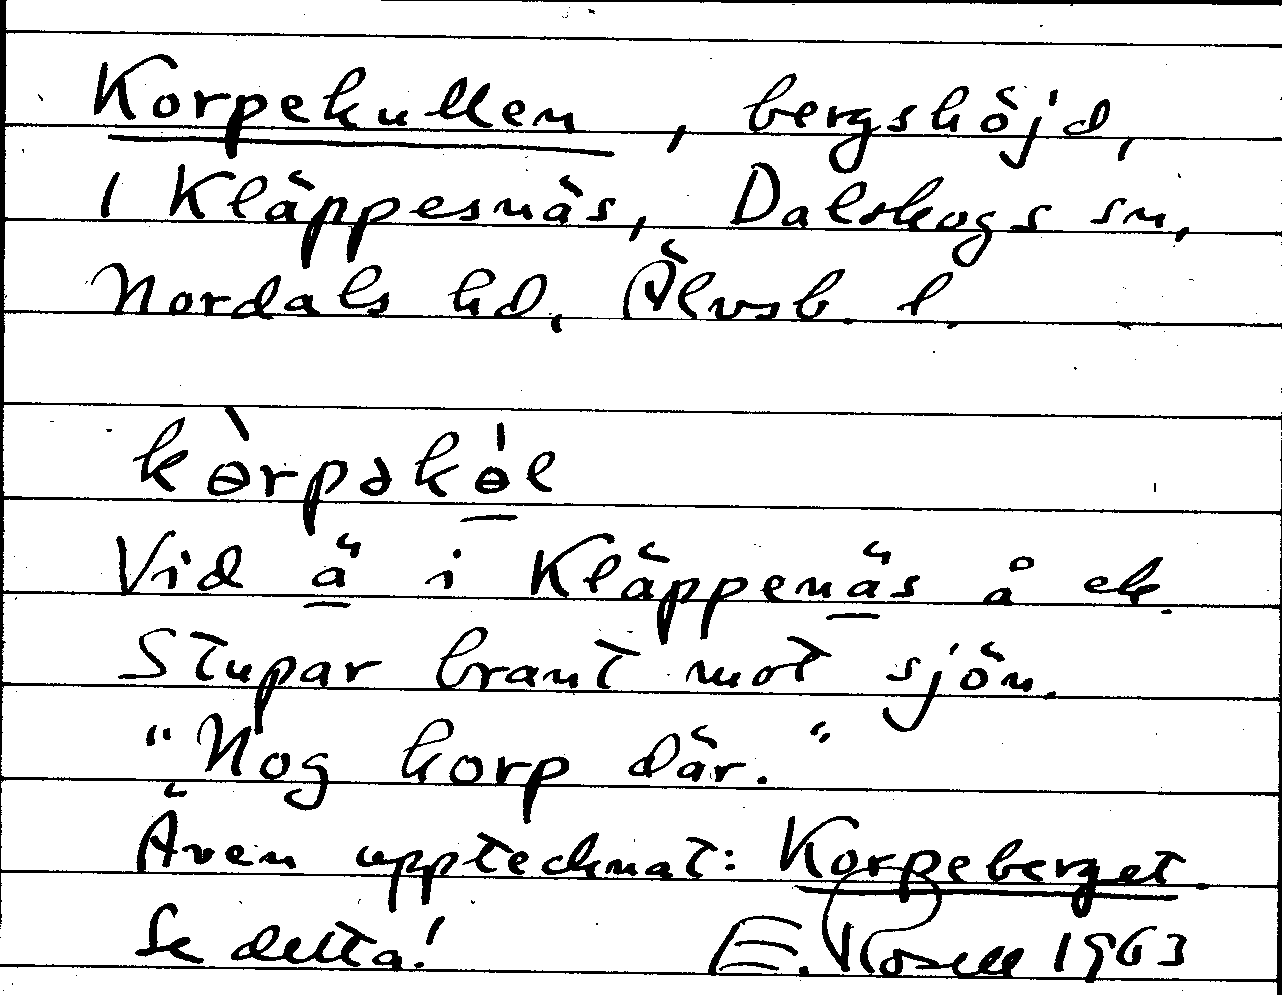 Korpekullen, bergshöjd,
1 Kläppesnäs, Dalskogs sn,
Nordals hd, Älvsb. l.
kɵ̀rpəkɵ̲̍l
Vid ä̲ i Kläppenä̲s å ek.
Stupar brant mot sjön.
"Nog korp där."
Även upptecknat: Korpeberget.
Se detta! E. Rosell 1963